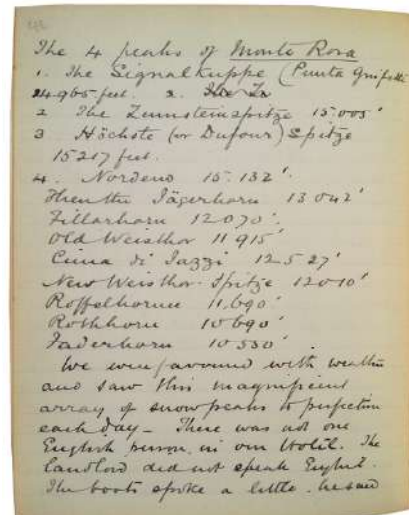 The 4 peaks of Monte Rosa
1. The Signalkuppe (Punta Gnifetti
14965 feet. 2.
2 The Zumsteinspitze 15.005'
3 Höchste (or Dufour) Spitze
15217 feet.
4. Nordend 15.132'.
Then the Jägerhorn 13042'
Fillarhorn 12070'.
Old Weissthor 11915'
Cima di Jazzi 12527'
New Weissthor Spitze 12010'
Roffelhorner 11,690'
Rothhorn 10690'
Faderhorn 10550'
We were favoured with weather
and saw this magnificent
array of snow peaks to perfection
each day – There was not one
English person in our Hotel. The
landlord did not speak English.
The boots spoke a little. he said